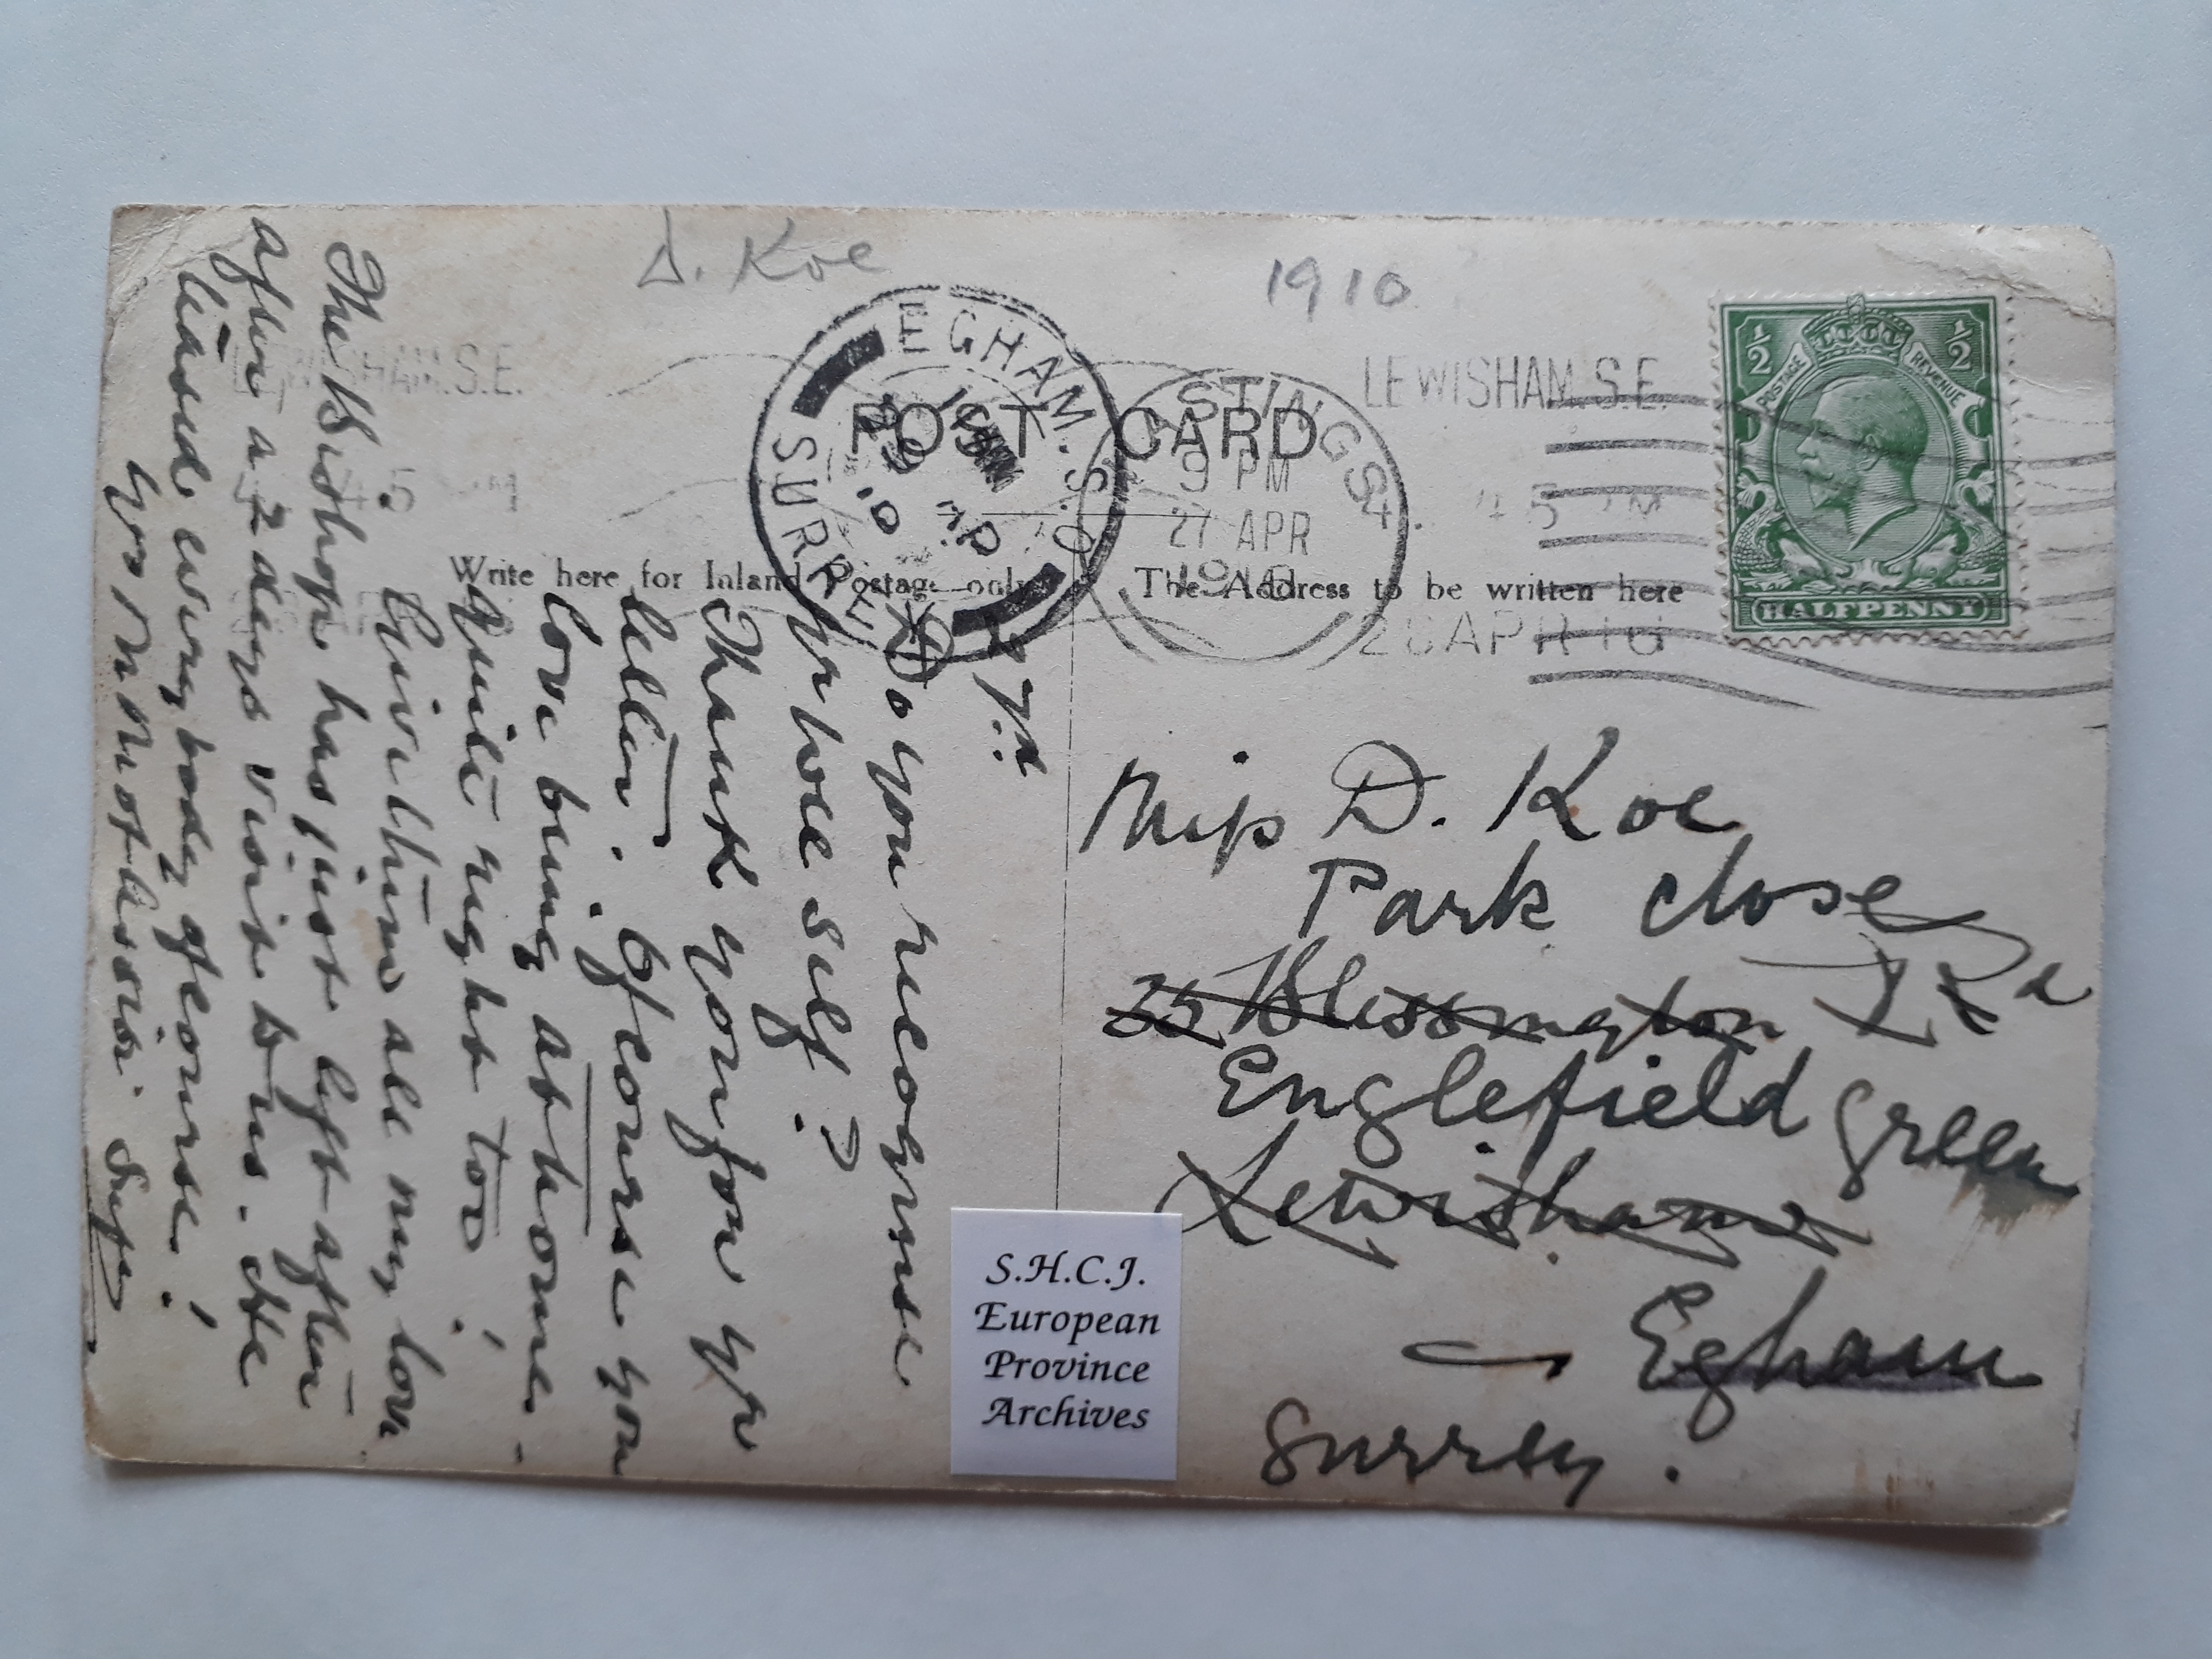 D. Koe
1910
EGHAM. S.O.
SURREY
AP
10
HASTINGS
9 PM
27 APR
1910
LEWISHAM. S.E.
45 PM
28 APR 10
LEWISHAM.S.E.
45 PM
POST CARD
Write here for Inland Postage only
The Address to be written here
½ ½
POSTAGE REVENUE
HALFPENNY
27th
Do you recognise
yr wee self?
Thank you for yr
letter. Of course you
love being at home -
quite right too!
Give them all my love
The Bishop has just left after
after a 2 days visit to us. He
blessed everybody of course!
Yrs in
Miss D. Koe
Park Close
35 Blessington Rd
Englefield Green
Lewisham
Egham
Surrey.
S.H.C.J.
European
Province
Archives